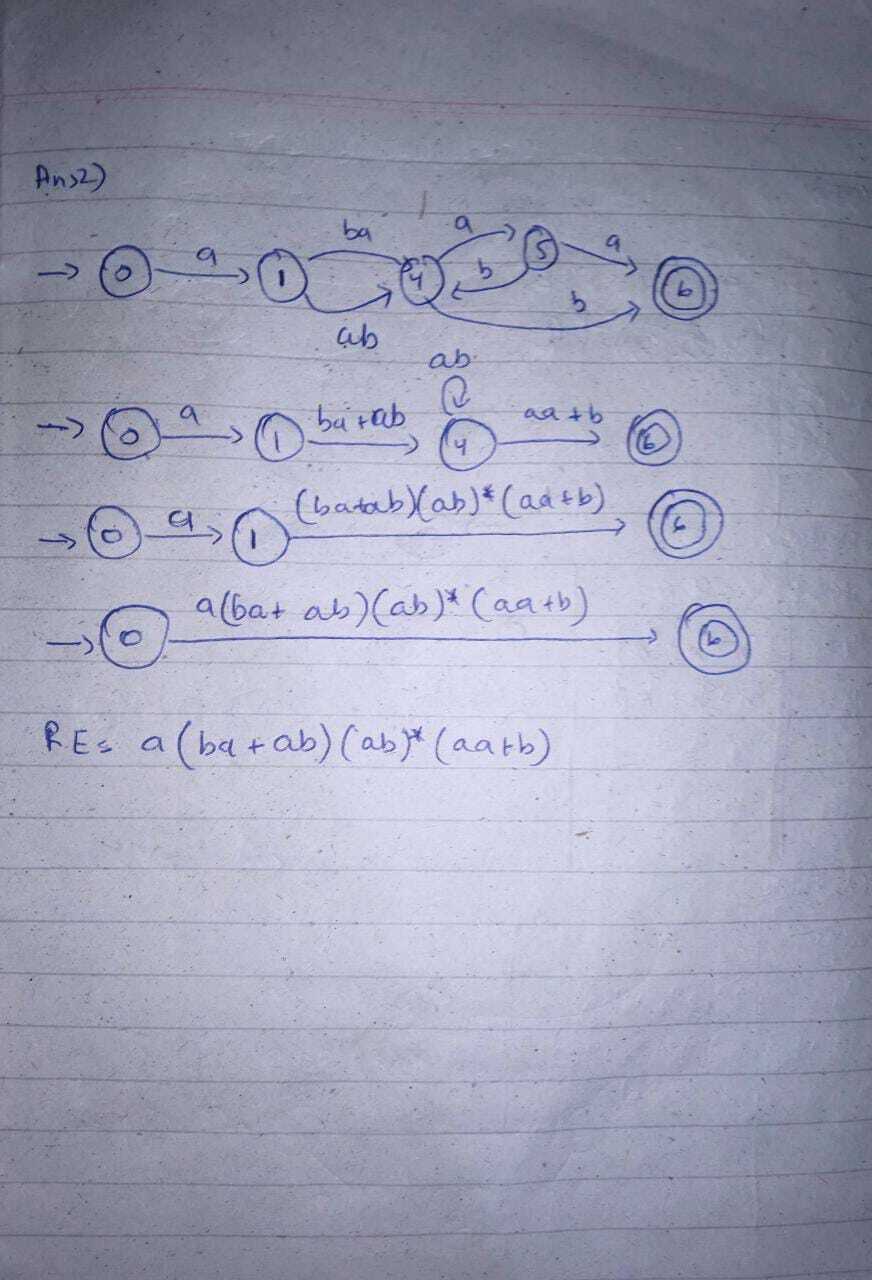 Ans2)
0 a 1 ba ab 4 a b 5 a b 6
0 a 1 ba+ab 4 ab aa+b 6
0 a 1 (ba+ab)(ab)*(aa+b) 6
0 a(ba+ab)(ab)*(aa+b) 6
RE= a(ba+ab)(ab)*(aa+b)